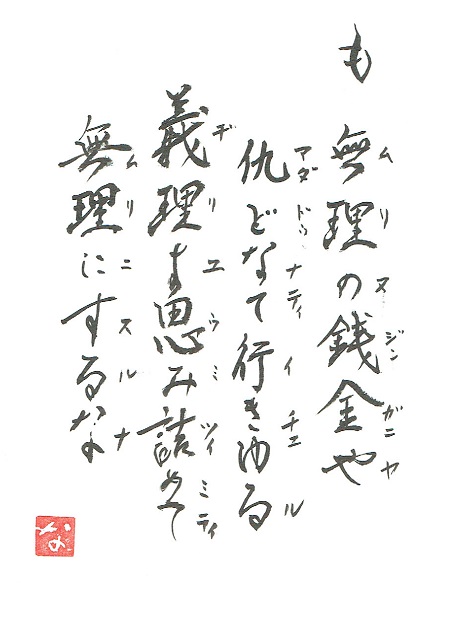 も
無理の銭金や
ムリヌジンガニヤ
仇どなて行きゆる
アダドゥナティイチュル
義理よ思み詰めて
ヂリユウミツィミティ
無理にするな
ムリニスルナ
な